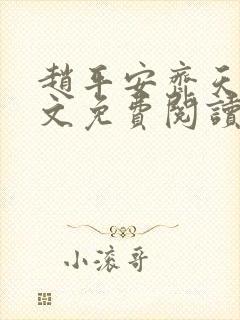 趙平安齊天
文免費閱讀
小滚哥